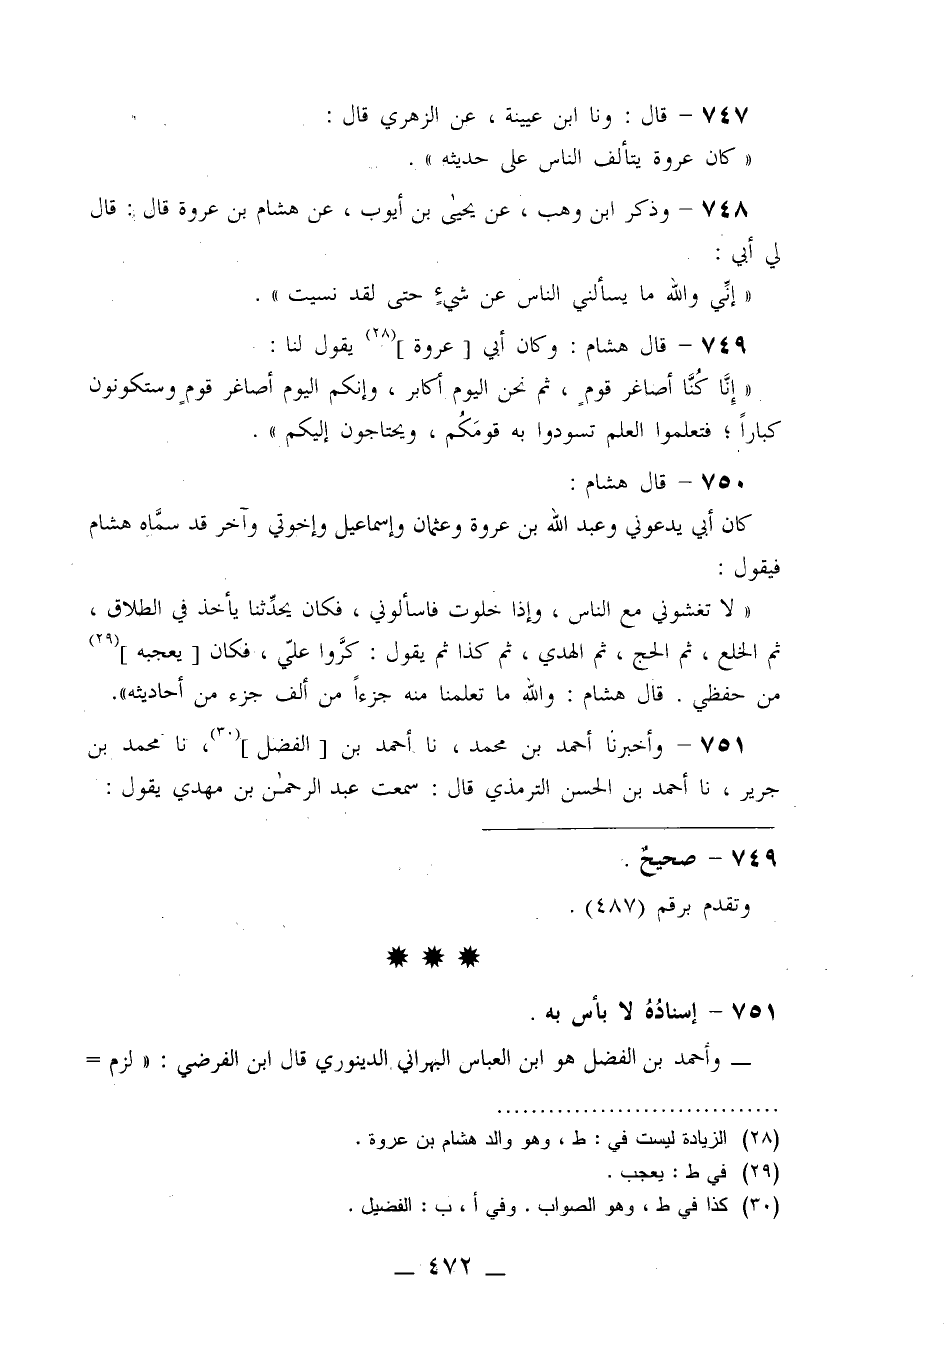 ٧٤٧ – قال : ونا ابن عيينة ، عن الزهري قال :
« كان عروة يتألف الناس على حديثه » .
٧٤٨ – وذكر ابن وهب ، عن يحيىٰ بن أيوب ، عن هشام بن عروة قال : قال
لي أبي :
« إنِّي والله ما يسألني الناس عن شيءٍ حتى لقد نسيت » .
٧٤٩ – قال هشام : وكان أبي [ عروة ](٢٨) يقول لنا :
« إِنَّا كُنَّا أصاغر قومٍ ، ثم نحن اليوم أكابر ، وإنكم اليوم أصاغر قومٍ وستكونون
كباراً ؛ فتعلموا العلم تسودوا به قومَكُم ، ويحتاجون إليكم » .
٧٥٠ – قال هشام :
كان أبي يدعوني وعبد الله بن عروة وعثمان وإسماعيل وإخوتي وآخر قد سمَّاه هشام
فيقول :
« لا تغشوني مع الناس ، وإذا خلوت فاسألوني ، فكان يحدِّثنا يأخذ في الطلاق ،
ثم الخلع ، ثم الحج ، ثم الهدي ، ثم كذا ثم يقول : كرَّوا عليّ ، فكان [ يعجبه ](٢٩)
من حفظي . قال هشام : والله ما تعلمنا منه جزءاً من ألف جزء من أحاديثه».
٧٥١ – وأخبرنا أحمد بن محمد ، نا أحمد بن [ الفضل ](٣٠)، نا محمد بن
جرير ، نا أحمد بن الحسن الترمذي قال : سمعت عبد الرحمٰن بن مهدي يقول :
٧٤٩ – صحيحٌ .
وتقدم برقم (٤٨٧) .
٧٥١ – إسنادُهُ لا بأس به .
— وأحمد بن الفضل هو ابن العباس البهراني الدينوري قال ابن الفرضي : « لزم =
(٢٨) الزيادة ليست في : ط ، وهو والد هشام بن عروة .
(٢٩) في ط : يعجب .
(٣٠) كذا في ط ، وهو الصواب . وفي أ ، ب : الفضيل .
— ٤٧٢ —